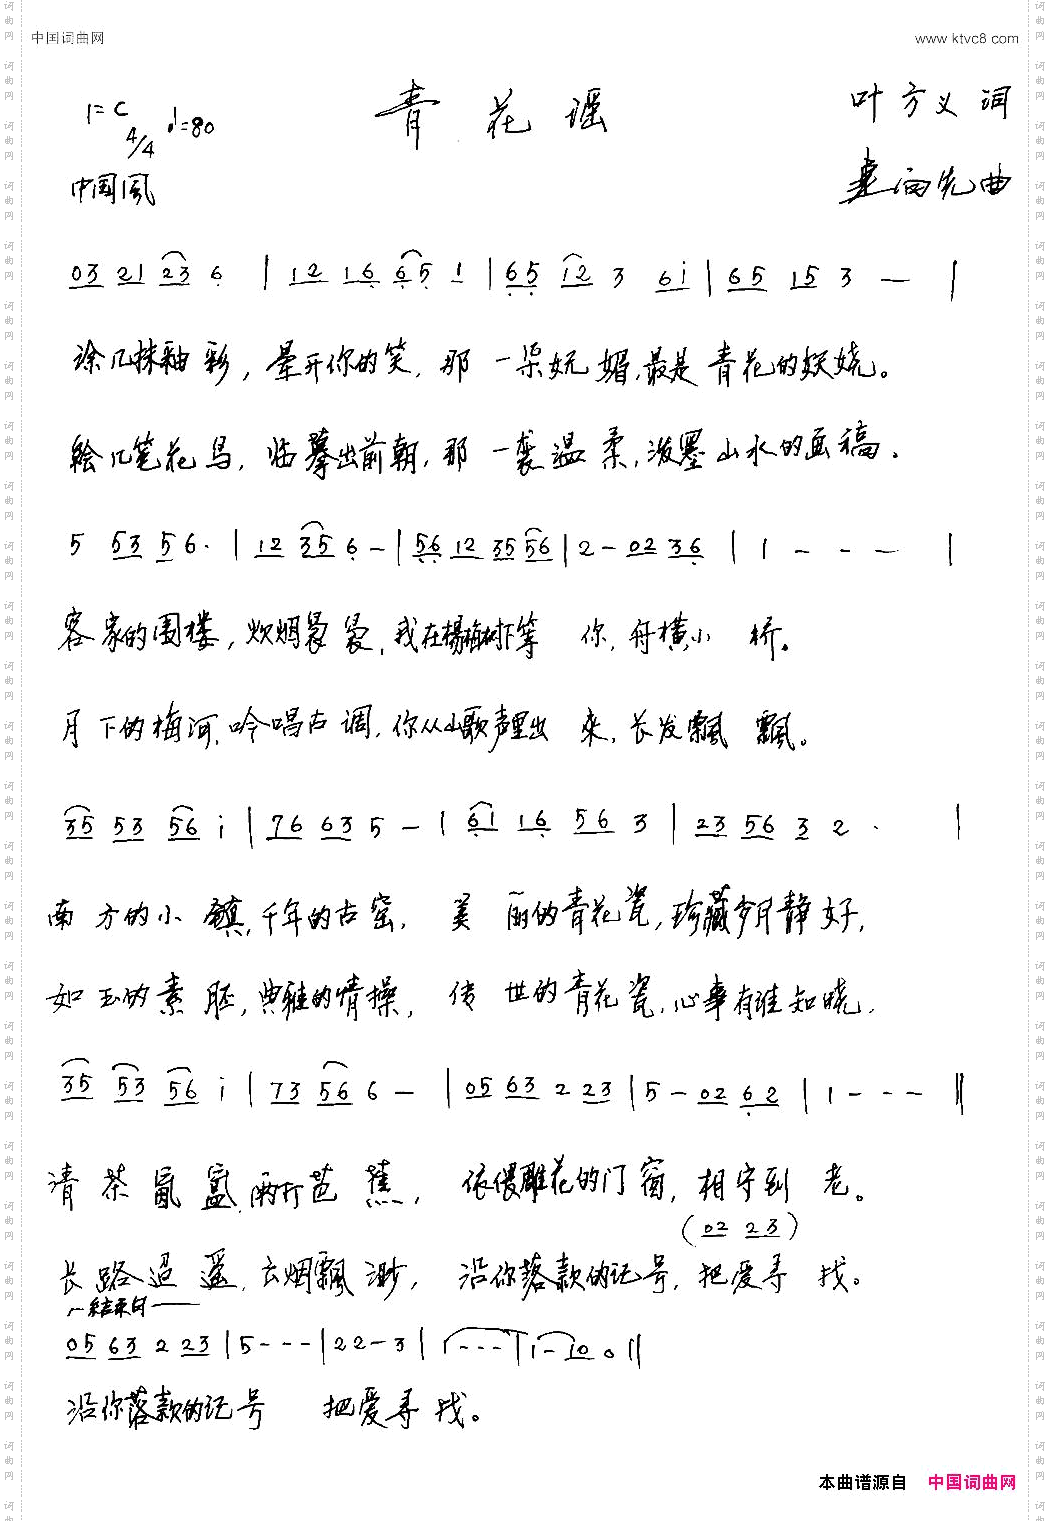 中国词曲网 www.ktvc8.com
1=C 4/4 ♩=80 青花谣 叶方义 词
中国風 向先曲
03 21 23 6 | 12 16 65 1 | 65 12 3 6i | 65 15 3 — |
涂几抹釉彩，晕开你的笑，那一朵妩媚，最是青花的妖娆。
绘几笔花鸟，临摹出前朝，那一袭温柔，泼墨山水的画稿。
5 53 56· | 12 35 6 — | 56 12 35 56 | 2 — 02 36 | 1 - - — |
客家的围楼，炊烟袅袅，我在杨梅树下等你，舟横小桥。
月下的梅河，吟唱古调，你从山歌声里出来，长发飘飘。
35 53 56 i | 76 63 5 — | 61 16 56 3 | 23 56 3 2 · |
南方的小镇，千年的古窑，美丽的青花瓷，珍藏岁月静好，
如玉的素胚，典雅的情操，传世的青花瓷，心事有谁知晓，
35 53 56 i | 73 56 6 — | 05 63 2 23 | 5 — 02 62 | 1 - - — ‖
清茶氤氲，雨打芭蕉，依偎雕花的门窗，相守到老。
(02 23)
长路迢遥，云烟飘渺，沿你落款的记号，把爱寻找。
结束句
05 63 2 23 | 5 - - - | 2 2 — 3 | 1 - - - | 1 — 10 0 ‖
沿你落款的记号 把爱寻找。
本曲谱源自 中国词曲网